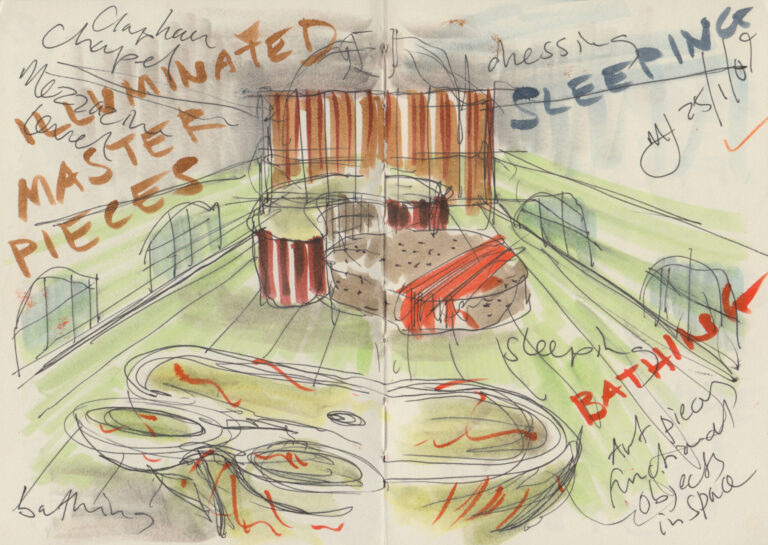 Clapham
Chapel
Mezzanine
Level
ILLUMINATED
MASTER
PIECES
dressing
SLEEPING
25/1/09
sleeping
BATHING
Art pieces
functional
objects
in space
bathing